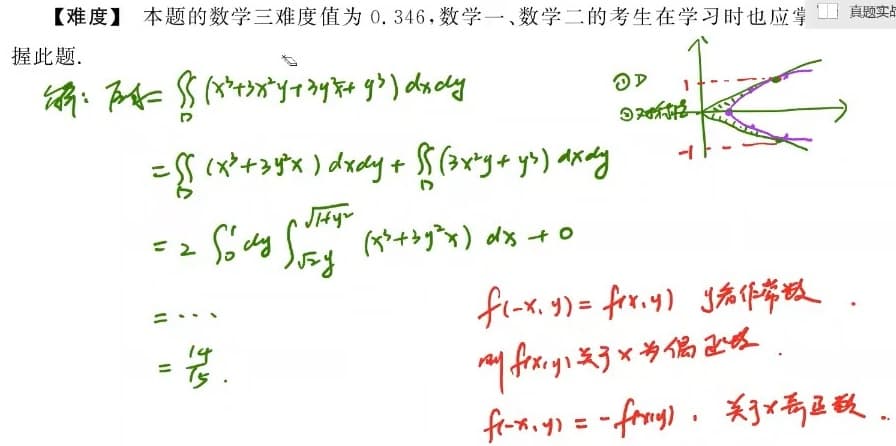 【难度】 本题的数学三难度值为 0.346,数学一、数学二的考生在学习时也应掌
真题实战
握此题.
解: 原式= ∬_D (x³+3x²y+3y²x+y³) dxdy
①D
②对称性
1
-1
= ∬_D (x³+3y²x) dxdy + ∬_D (3x²y+y³) dxdy
= 2 ∫₀¹ dy ∫_{√2y}^{√(1+y²)} (x³+3y²x) dx + 0
= ⋯
= 14/15 .
f(-x, y) = f(x, y) y看作常数 .
则 f(x, y) 关于 x 为偶函数 .
f(-x, y) = -f(x, y) , 关于x奇函数 .